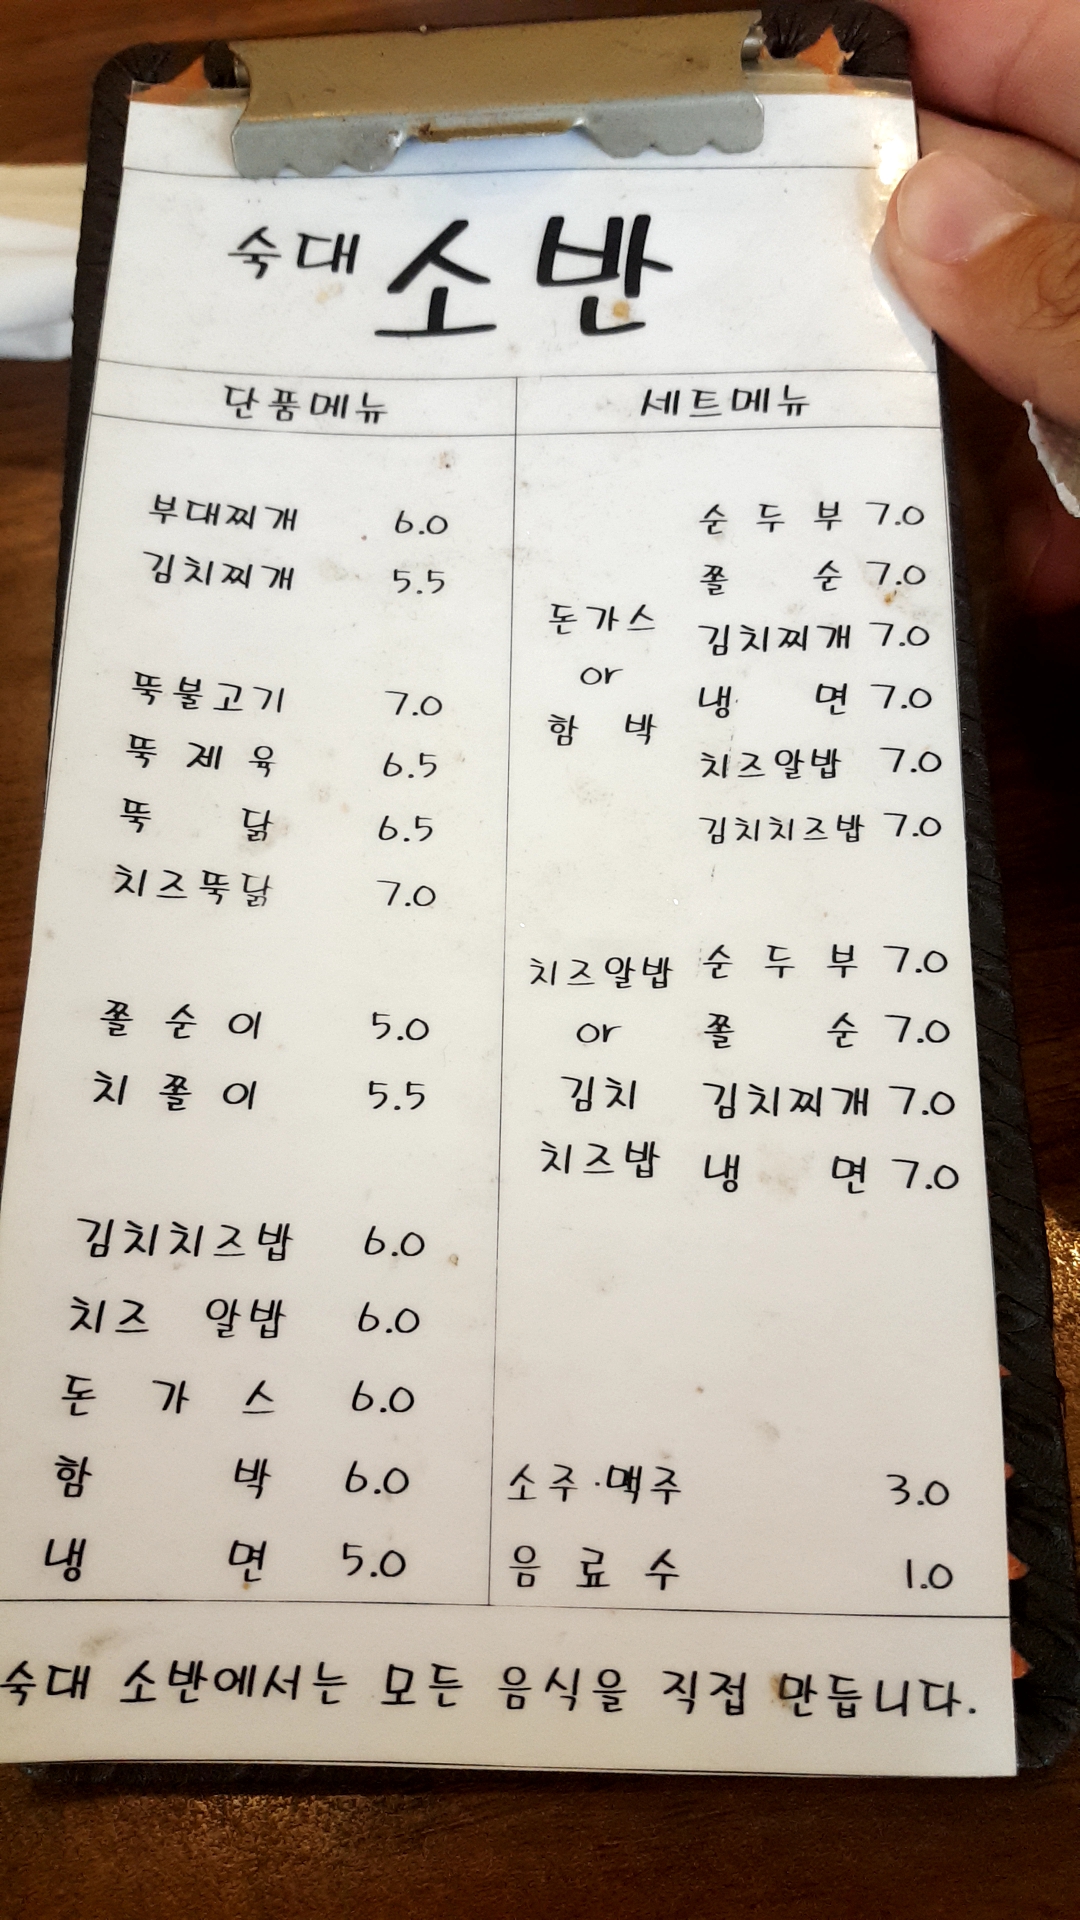 숙대 소반
단품메뉴
부대찌개 6.0
김치찌개 5.5
뚝불고기 7.0
뚝제육 6.5
뚝닭 6.5
치즈뚝닭 7.0
쫄순이 5.0
치쫄이 5.5
김치치즈밥 6.0
치즈 알밥 6.0
돈가스 6.0
함박 6.0
냉면 5.0
세트메뉴
돈가스
or
함박
순두부 7.0
쫄순 7.0
김치찌개 7.0
냉면 7.0
치즈알밥 7.0
김치치즈밥 7.0
치즈알밥
or
김치
치즈밥
순두부 7.0
쫄순 7.0
김치찌개 7.0
냉면 7.0
소주·맥주 3.0
음료수 1.0
숙대 소반에서는 모든 음식을 직접 만듭니다.